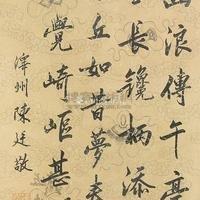 浪傳午亭
長鑱柄添
丘如昔夢
覺崎嶇甚
澤州陳廷敬